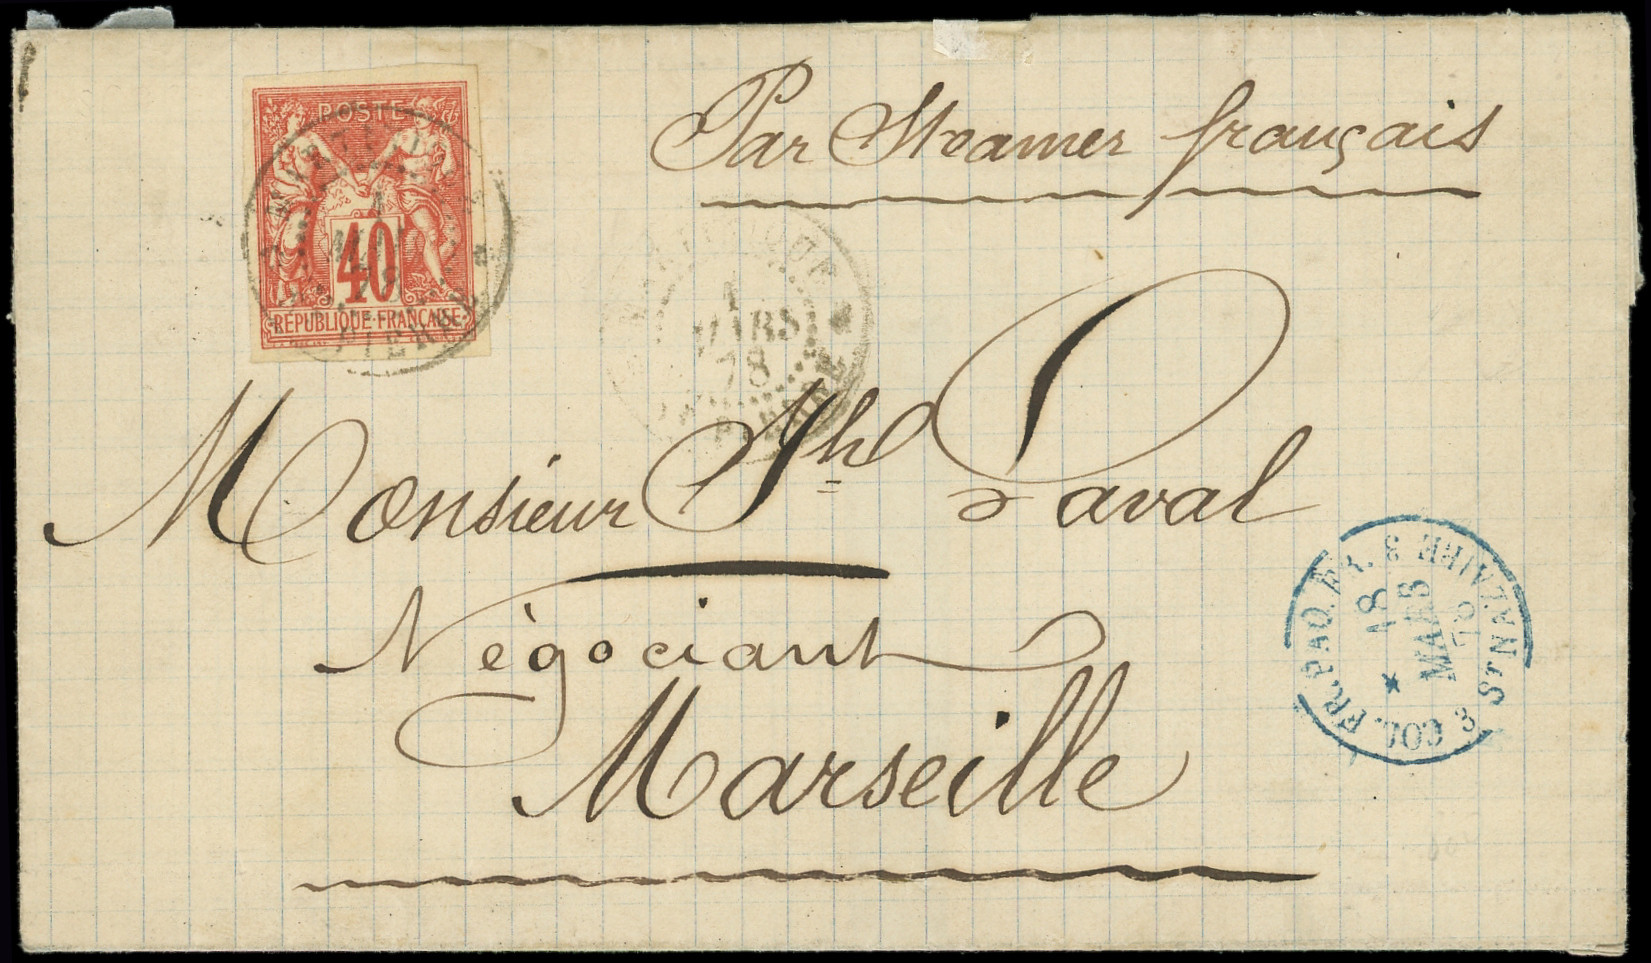 POSTE
40
RÉPUBLIQUE FRANÇAISE
Par Steamer français
MARTINIQUE
1
MARS
78
ST PIERRE
Monsieur Jh Laval
Négociant
Marseille
COL. FR. PAQ. FR. 3 ST NAZAIRE 3
18
MARS
78